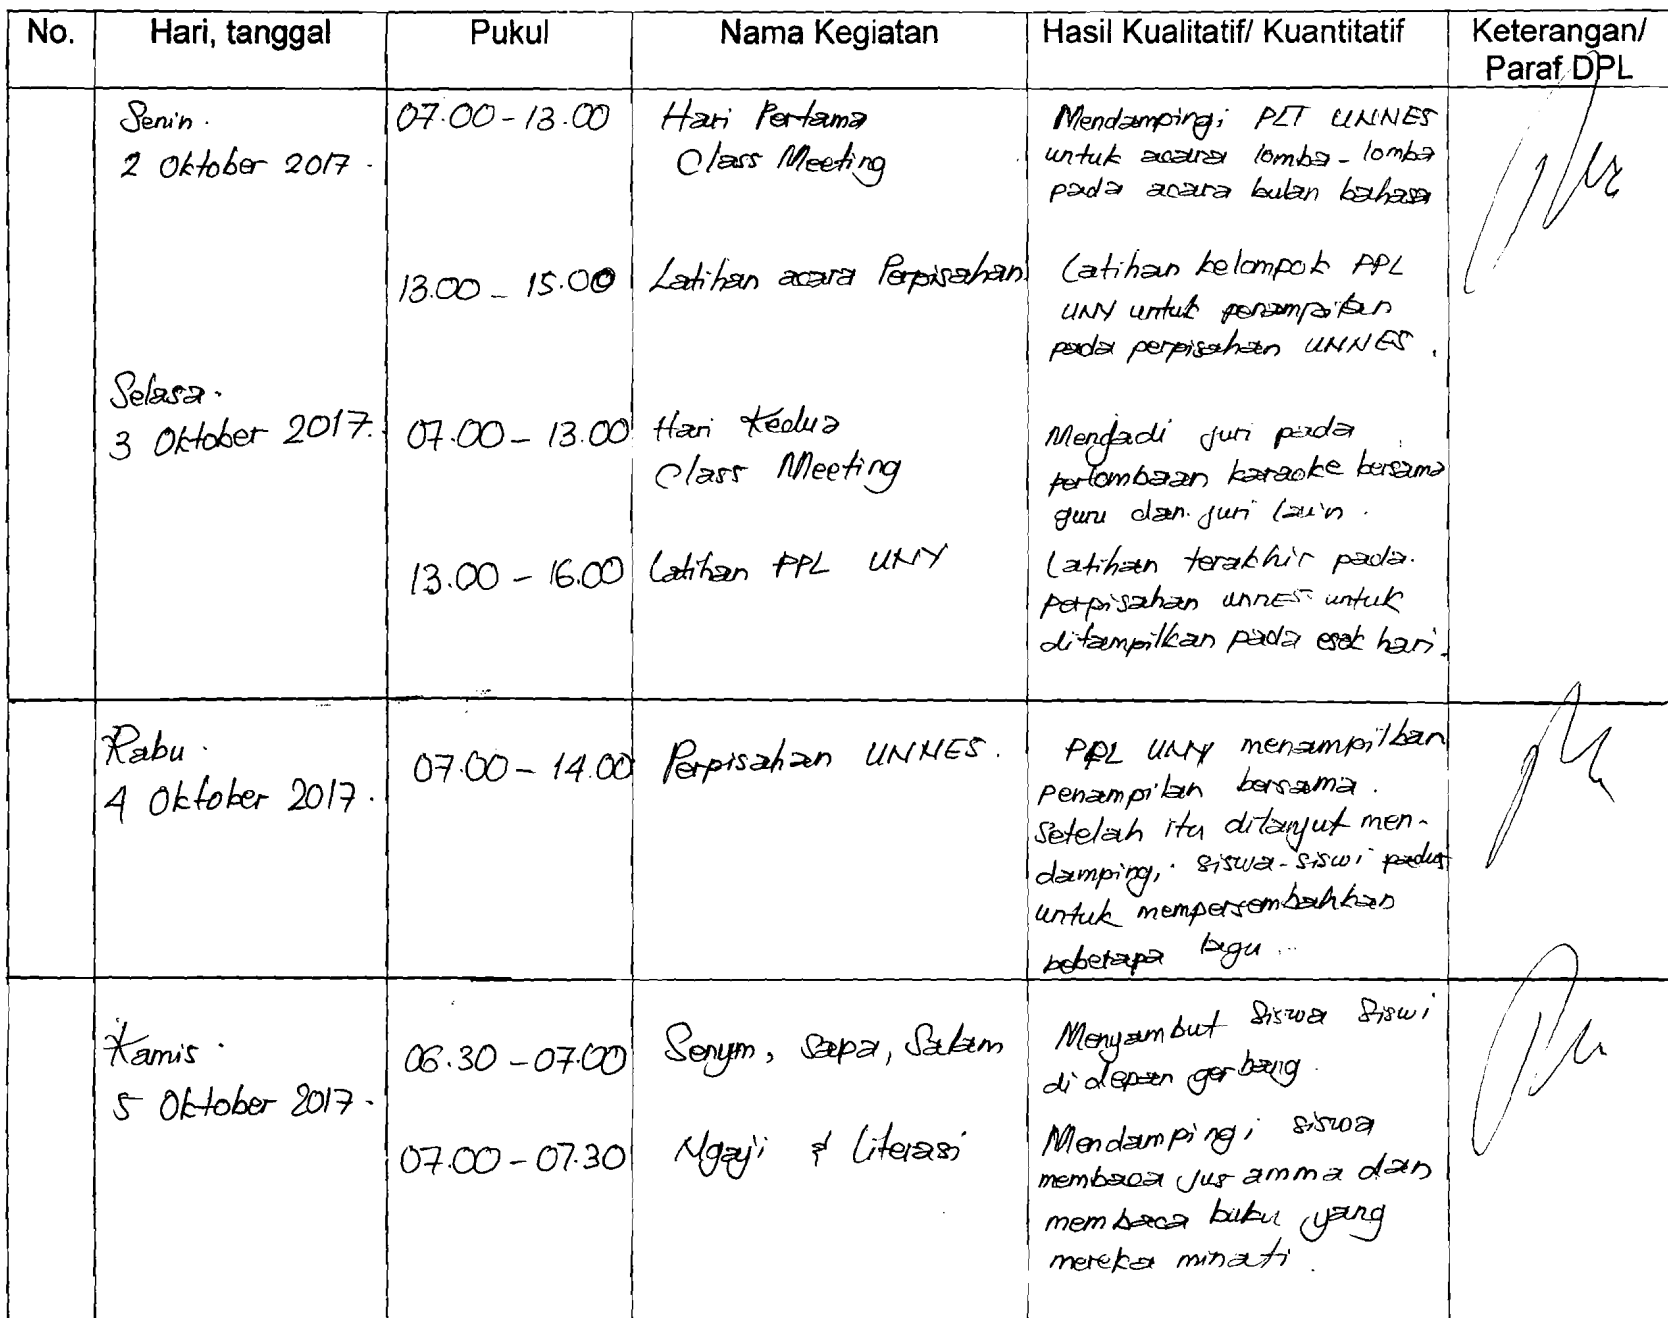 No. Hari, tanggal Pukul Nama Kegiatan Hasil Kualitatif/ Kuantitatif Keterangan/
Paraf DPL
Senin.
2 Oktober 2017.
07.00 - 13.00
Hari Pertama
Class Meeting
Mendampingi PLT UNNES
untuk acara lomba-lomba
pada acara bulan bahasa
13.00 - 15.00
Latihan acara Perpisahan
Latihan kelompok PPL
UNY untuk penampilan
pada perpisahan UNNES.
Selasa.
3 Oktober 2017.
07.00 - 13.00
Hari Kedua
Class Meeting
Menjadi juri pada
perlombaan karaoke bersama
guru dan juri lain.
13.00 - 16.00
Latihan PPL UNY
Latihan terakhir pada.
Perpisahan UNNES untuk
ditampilkan pada esok hari.
Rabu.
4 Oktober 2017.
07.00 - 14.00
Perpisahan UNNES.
PPL UNY menampilkan
Penampilan bersama.
Setelah itu dilanjut men-
dampingi siswa-siswi padus
untuk mempersembahkan
beberapa lagu
Kamis.
5 Oktober 2017.
06.30 - 07.00
Senym, Sapa, Salam
Menyambut Siswa Siswi
di depan gerbang.
07.00 - 07.30
Ngaji & Literasi
Mendampingi siswa
membaca jus amma dan
membaca buku yang
mereka minati.